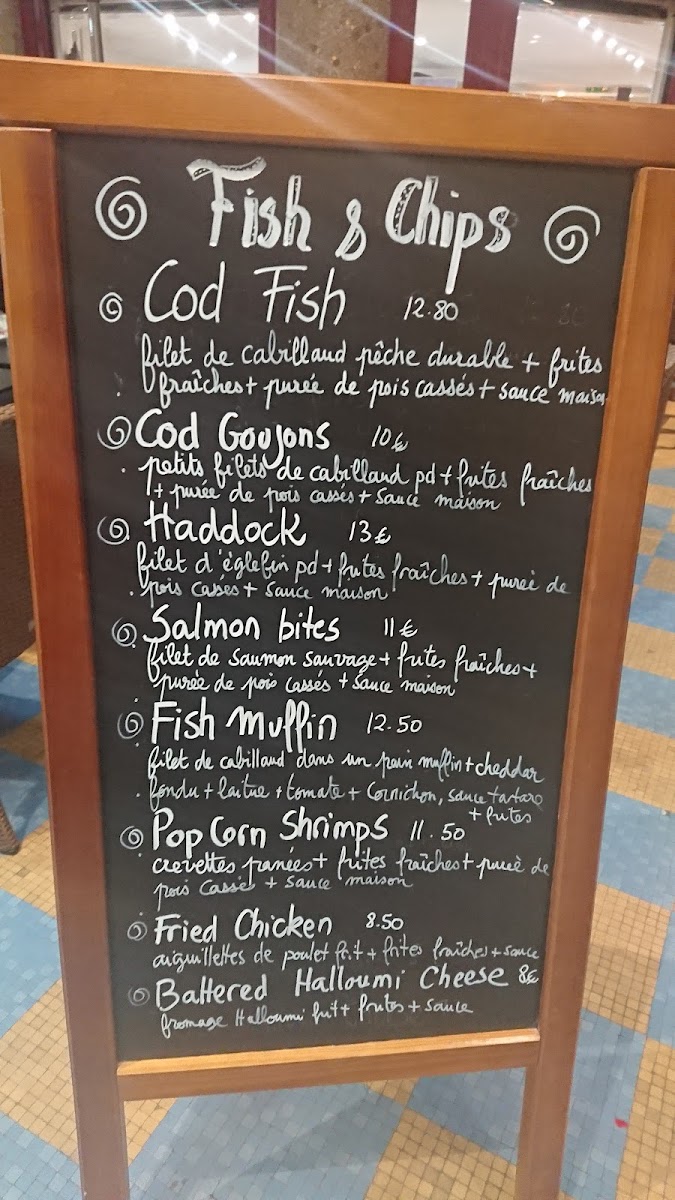 Fish & Chips
Cod Fish 12.80
filet de cabillaud pêche durable + frites
fraîches + purée de pois cassés + sauce maison
Cod Goujons 10€
petits filets de cabillaud pd + frites fraîches
+ purée de pois cassés + sauce maison
Haddock 13€
filet d'églefin pd + frites fraîches + pureè de
pois cassés + sauce maison
Salmon bites 11€
filet de saumon sauvage + frites fraîches +
purée de pois cassés + sauce maison
Fish Muffin 12.50
filet de cabillaud dans un pain muffin + cheddar
fondu + laitue + tomate + Cornichon, sauce tartare
+ frites
Pop Corn Shrimps 11.50
crevettes panées + frites fraîches + pureè de
pois Cassés + sauce maison
Fried Chicken 8.50
aiguillettes de poulet frit + frites fraîches + sauce
Battered Halloumi Cheese 8€
fromage Halloumi frit + frites + sauce